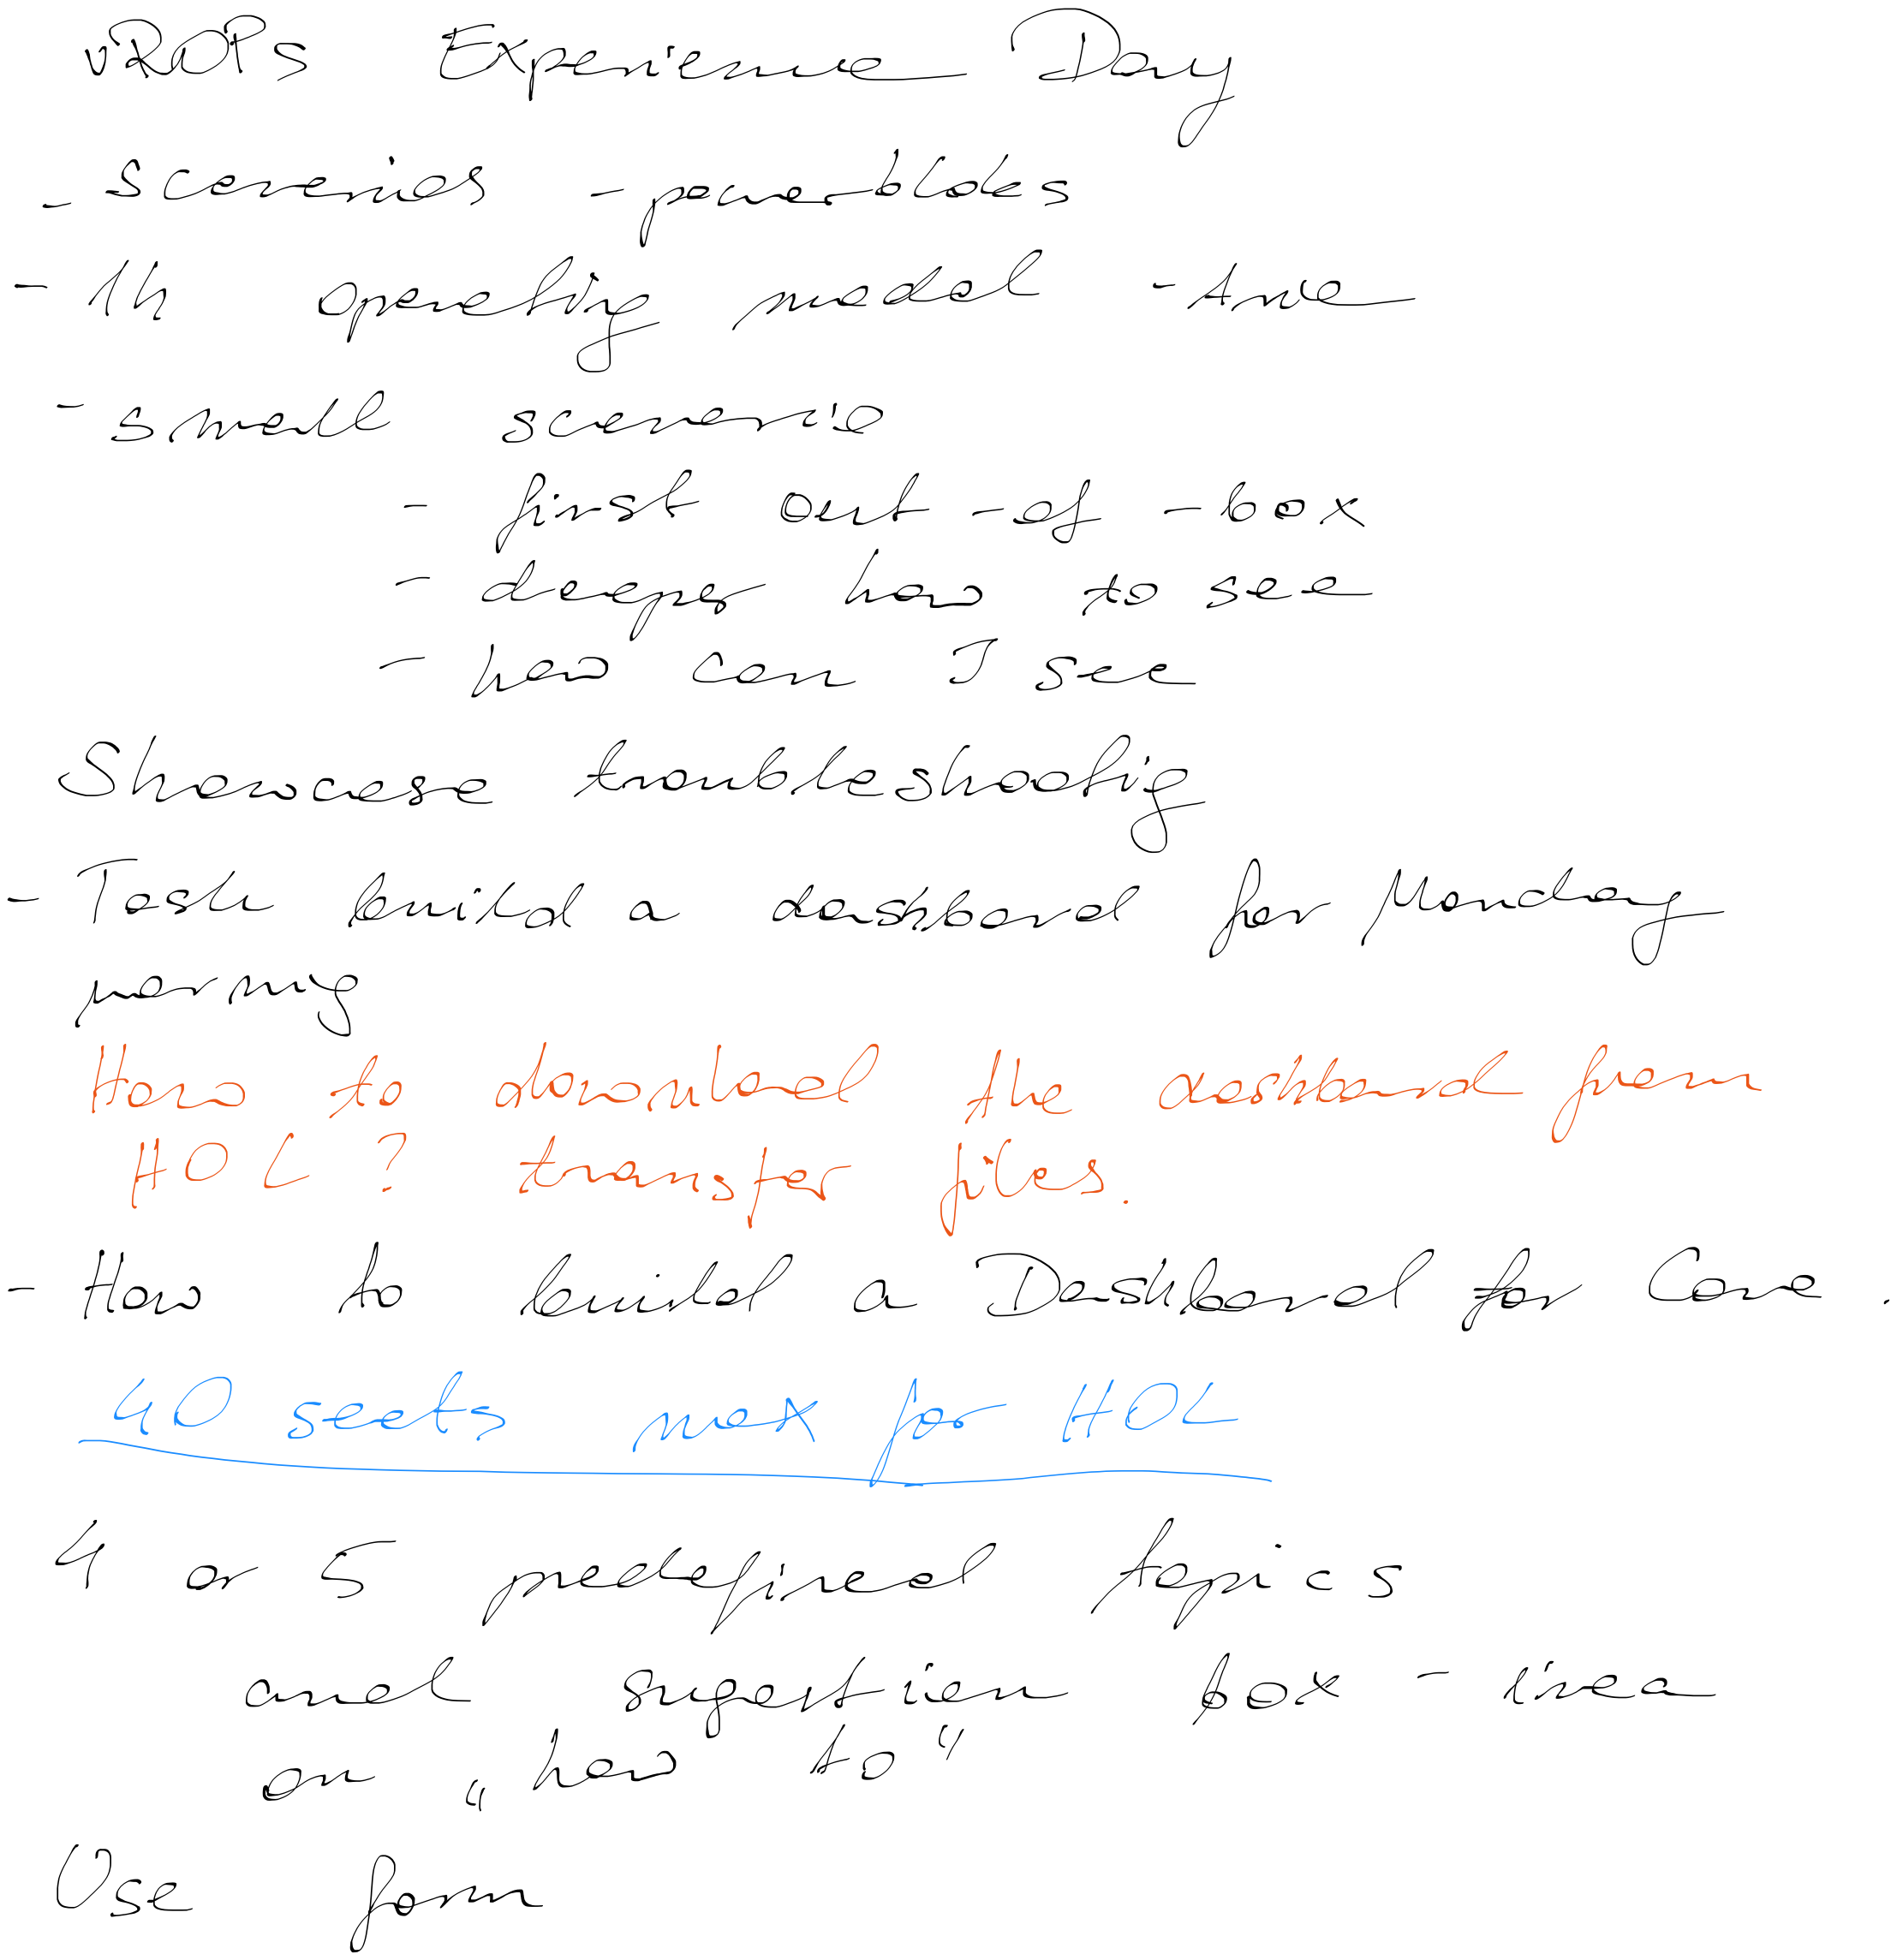 vROPs Experience Day
- scenarios - powerblocks
- 1h operating model -
- small scenario
- first out-of-box
- deeper how to see
- how can I see
Showcase troubleshooting
- Task build a dashboard for Monday
morning
How to download the dashboard from
HOL? transfer files.
- How to build a Dashboard for
40 seats max for HOL
4 or 5 predefined topics
and sugestion box -
on "how to"
Use form